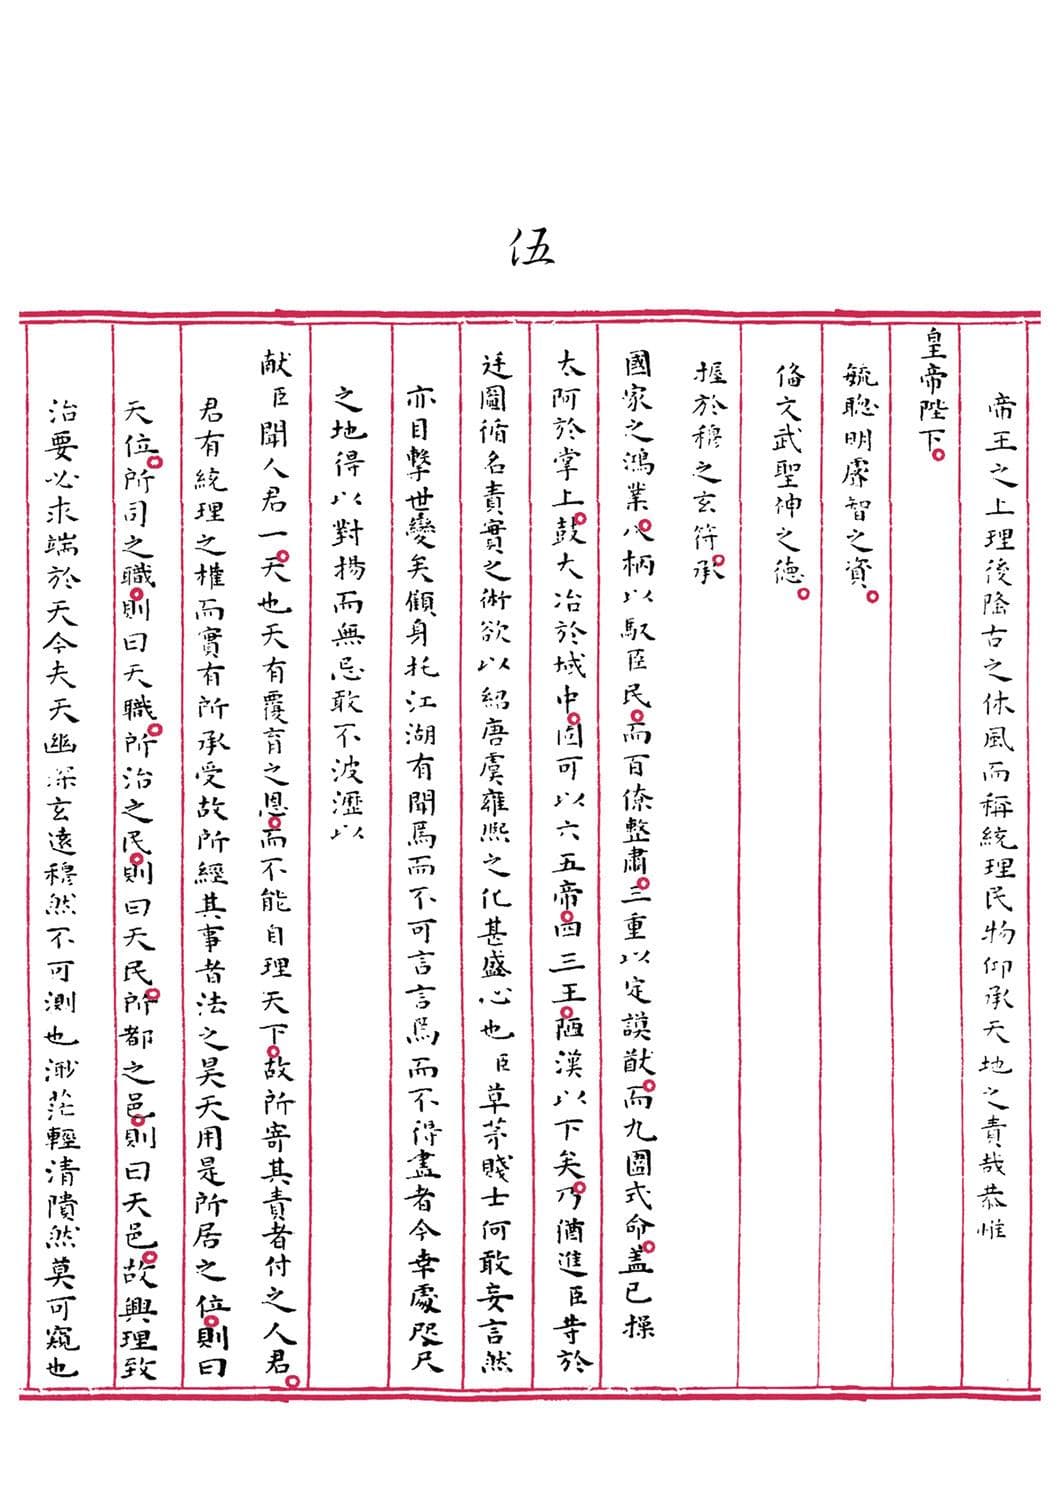 伍
帝王之上理後隆古之休風而稱統理民物仰承天地之責哉恭惟
皇帝陛下
毓聰明睿智之資
備文武聖神之德
握於穆之玄符承
國家之鴻業八柄以馭臣民而百僚整肅三重以定謨猷而九圍式命蓋已操
太阿於掌上鼓大冶於域中固可以六五帝四三王陋漢以下矣乃猶進臣等於
廷圖循名責實之術欲以紹唐虞雍熙之化甚盛心也臣草茅賤士何敢妄言然
亦目擊世變矣顧身托江湖有聞焉而不可言言焉而不得盡者今幸處咫尺
之地得以對揚而無忌敢不披瀝以
献臣聞人君一天也天有覆育之恩而不能自理天下故所寄其責者付之人君
君有統理之權而實有所承受故所經其事者法之昊天用是所居之位則曰
天位所司之職則曰天職所治之民則曰天民所都之邑則曰天邑故興理致
治要必求端於天今夫天幽深玄遠穆然不可測也渺茫輕清隤然莫可窺也